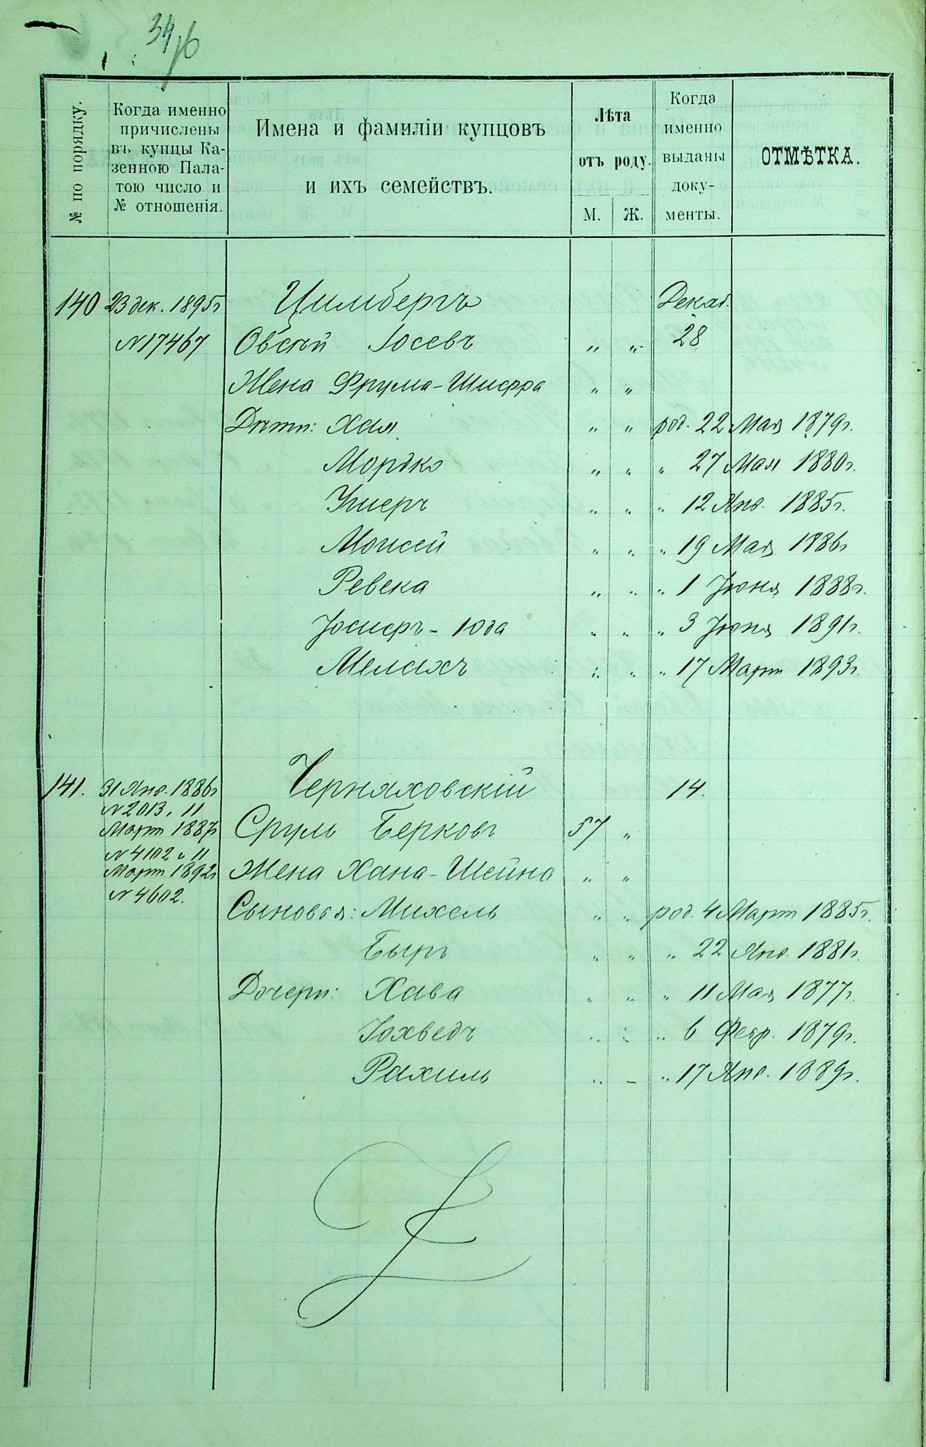 34
№ по порядку.
Когда именно
причислены
въ купцы Ка-
зенною Пала-
тою число и
№ отношенія.
Имена и фамиліи купцовъ
и ихъ семействъ.
Лѣта
отъ роду.
М. Ж.
Когда
именно
выданы
доку-
менты.
ОТМѢТКА.
140 23 дек. 1895 г. Цимбергъ Декаб.
№ 17467 Овсѣй Іосевъ „ „ 28
Жена Фрума-Шифра „ „
Дѣти: Хая „ „ род. 22 Мая 1879 г.
Мордко „ „ „ 27 Мая 1880 г.
Ушеръ „ „ „ 12 Янв. 1885 г.
Моисей „ „ „ 19 Мая 1886 г
Ревека „ „ „ 1 Іюня 1888 г.
Іосифъ-Юда „ „ „ 3 Іюня 1891 г.
Мелихъ „ „ „ 17 Март 1893 г
141. 31 Янв. 1886 г Черняховскій 14.
№ 2013, 11
Март 1887 г Сруль Берковъ 57 „
№ 4102 и 11
Март 1892 г Жена Хана-Шейна „ „
№ 4602.
Сыновья: Михель „ „ род. 4 Март 1885 г.
Беръ „ „ „ 22 Янв. 1881 г.
Дочери: Хава „ „ „ 11 Мая 1877 г.
Іохведъ „ „ „ 6 Февр. 1879 г.
Рахиль „ – „ 17 Янв. 1889 г.